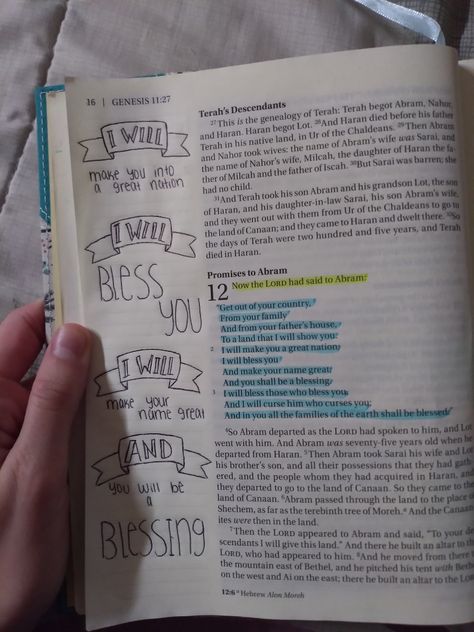 16 | GENESIS 11:27
I WILL
make you into
a great nation
I WILL
BLESS
YOU
I WILL
make your
name great
AND
you will be
a
BLESSING
Terah's Descendants
27This is the genealogy of Terah: Terah begot Abram, Nahor,
and Haran. Haran begot Lot. 28And Haran died before his father
Terah in his native land, in Ur of the Chaldeans. 29Then Abram
and Nahor took wives: the name of Abram's wife was Sarai, and
the name of Nahor's wife, Milcah, the daughter of Haran the fa-
ther of Milcah and the father of Iscah. 30But Sarai was barren; she
had no child.
31And Terah took his son Abram and his grandson Lot, the son
of Haran, and his daughter-in-law Sarai, his son Abram's wife,
and they went out with them from Ur of the Chaldeans to go to
the land of Canaan; and they came to Haran and dwelt there. 32So
the days of Terah were two hundred and five years, and Terah
died in Haran.
Promises to Abram
12 Now the LORD had said to Abram:
"Get out of your country,
From your family
And from your father's house,
To a land that I will show you.
2 I will make you a great nation;
I will bless you
And make your name great;
And you shall be a blessing.
3 I will bless those who bless you,
And I will curse him who curses you;
And in you all the families of the earth shall be blessed."
4So Abram departed as the LORD had spoken to him, and Lot
went with him. And Abram was seventy-five years old when he
departed from Haran. 5Then Abram took Sarai his wife and Lot
his brother's son, and all their possessions that they had gath-
ered, and the people whom they had acquired in Haran, and
they departed to go to the land of Canaan. So they came to the
land of Canaan. 6Abram passed through the land to the place of
Shechem, as far as the terebinth tree of Moreh.a And the Canaan-
ites were then in the land.
7Then the LORD appeared to Abram and said, "To your de-
scendants I will give this land." And there he built an altar to the
LORD, who had appeared to him. 8And he moved from there to
the mountain east of Bethel, and he pitched his tent with Bethel
on the west and Ai on the east; there he built an altar to the LORD
12:6 a Hebrew Alon Moreh